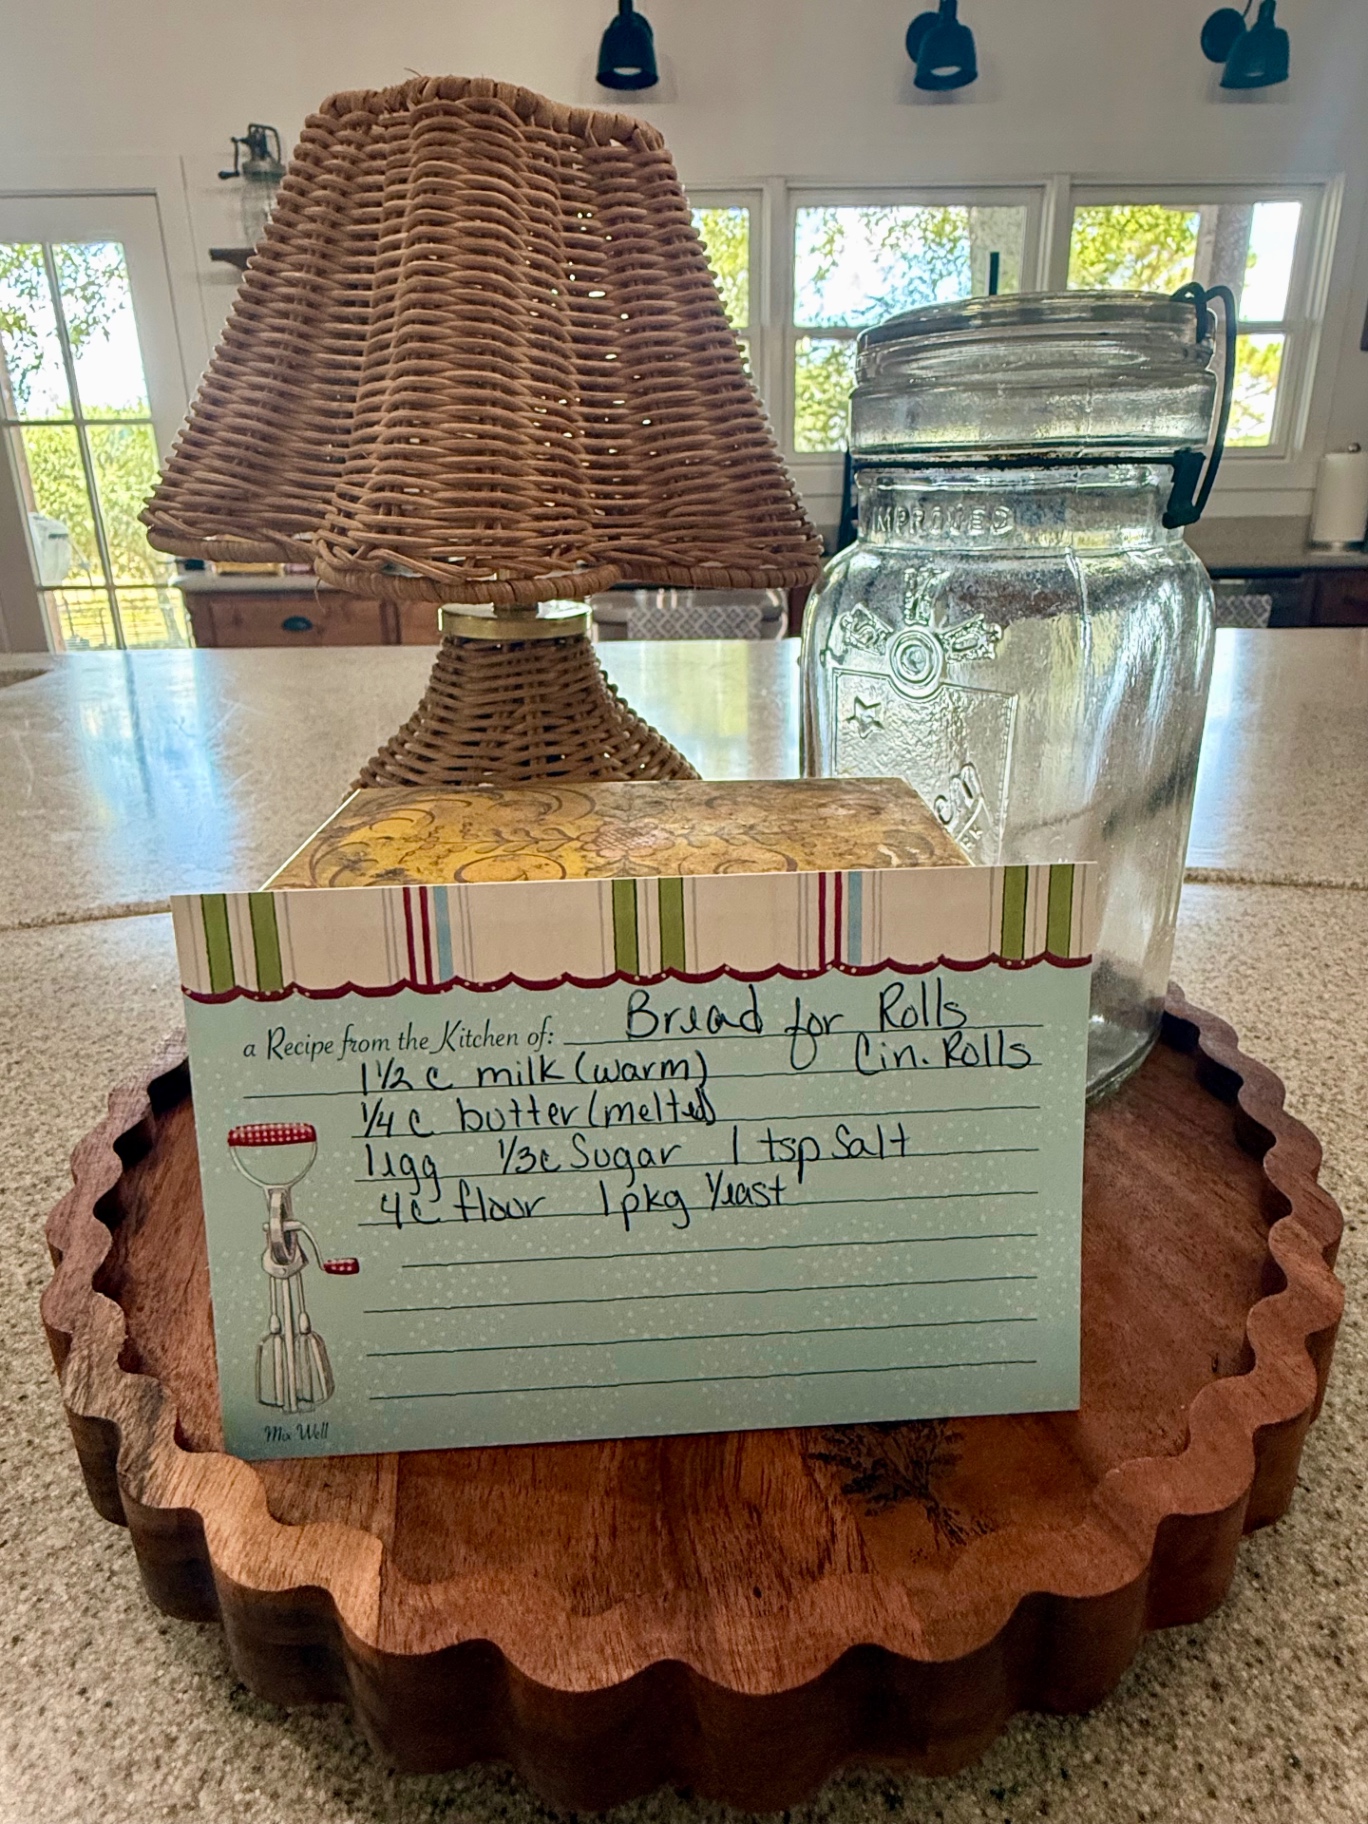 IMPROVED
a Recipe from the Kitchen of: Bread for Rolls
Cin. Rolls
1 1/2 c milk (warm)
1/4 c butter (melted)
1 egg 1/3 c Sugar 1 tsp Salt
4c flour 1 pkg Yeast
Mix Well